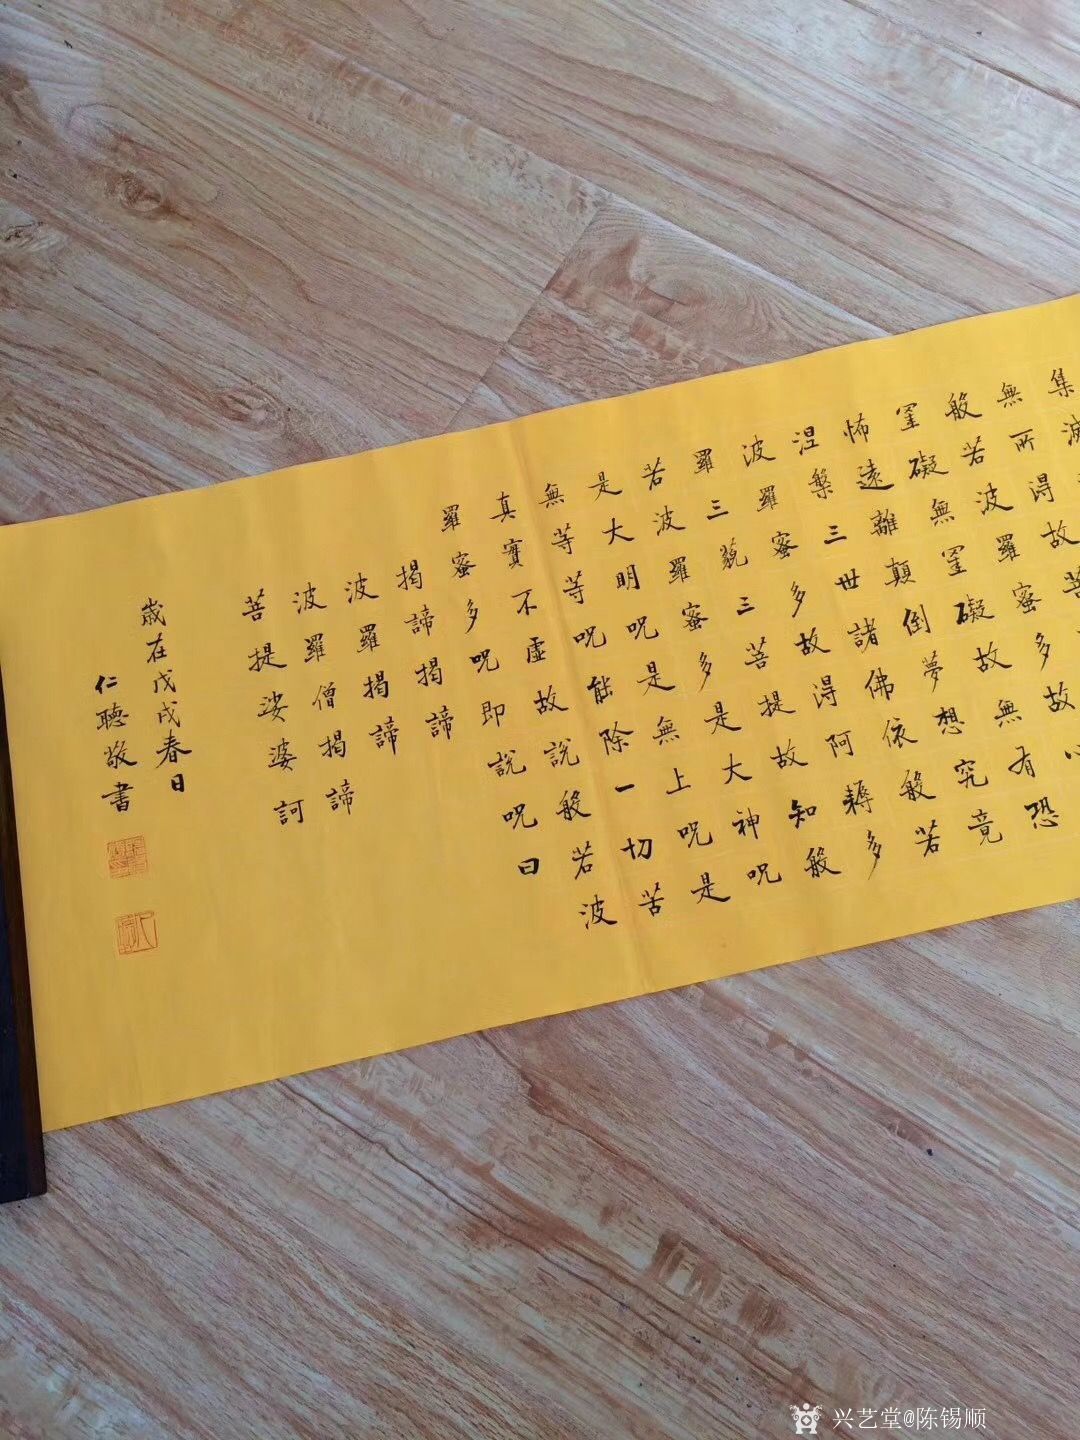 集滅
無所得故菩
般若波羅蜜多故心
罣礙無罣礙故無有恐
怖遠離顛倒夢想究竟
涅槃三世諸佛依般若
波羅蜜多故得阿耨多
羅三藐三菩提故知般
若波羅蜜多是大神呪
是大明呪是無上呪是
無等等呪能除一切苦
真實不虛故說般若波
羅蜜多呪即說呪曰
揭諦揭諦
波羅揭諦
波羅僧揭諦
菩提娑婆訶
歲在戊戌春日
仁聽敬書
兴艺堂@陈锡顺